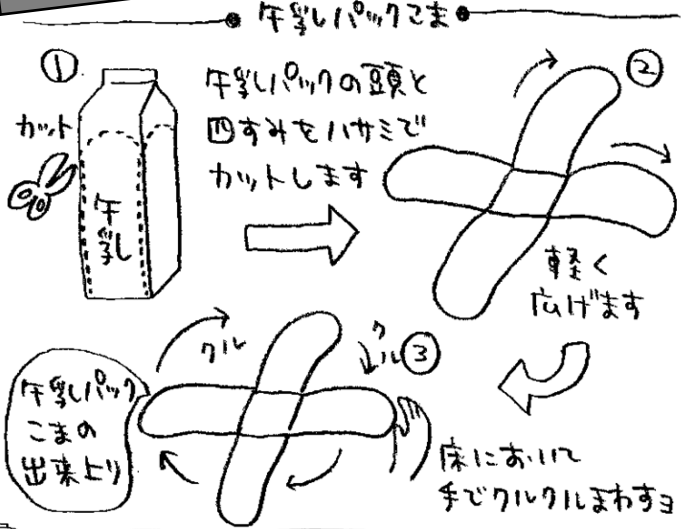 牛乳パックこま
①
カット
牛乳
牛乳パックの頭と
四すみをハサミで
カットします
②
軽く
広げます
③
クル
クル
牛乳パック
こまの
出来上り
床において
手でクルクルまわすヨ